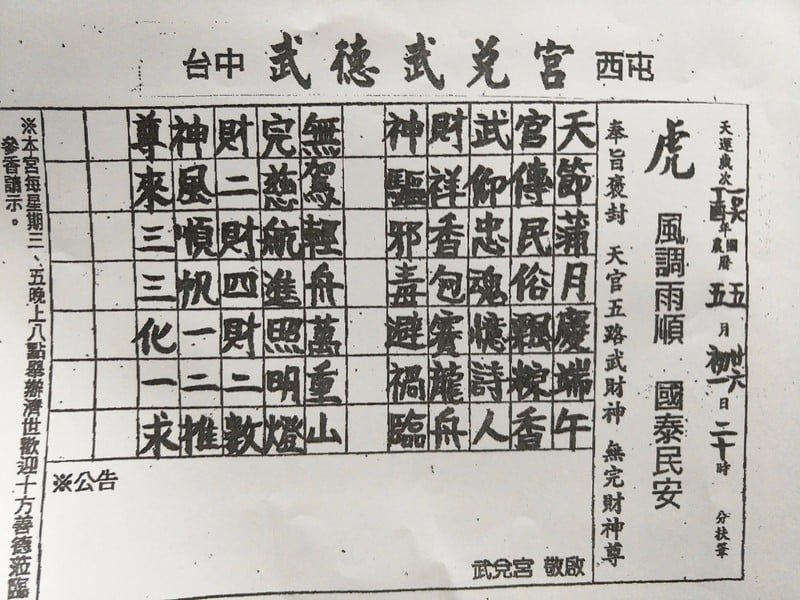 台中 武德武兌宮 西屯
天運歲次 年 國農曆 五五 月 廿六初一 日 二十時 分扶筆
虎 風調雨順 國泰民安
奉旨褒封 天官五路武財神 無完財神尊
天節蒲月慶端午
官傳民俗飄粽香
武仰忠魂憶詩人
財祥香包賽龍舟
神驅邪毒避禍臨
無駕輕舟萬重山
完慈航進照明燈
財二財四財二數
神風順帆一二推
尊來三三化一求
※公告
武兌宮 敬啟
※本宮每星期三、五晚上八點舉辦濟世歡迎十方善德蒞臨
參香請示。